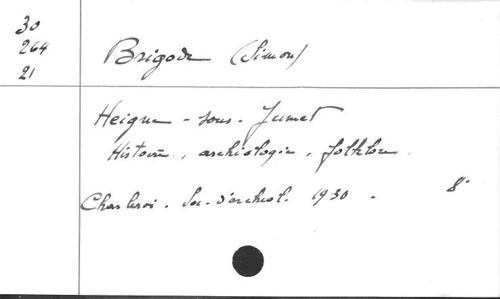 30
264
21
Brigode (Simon)
Heigne - sous - Jumet
Histoire, archéologie, folklore.
Charleroi. Soc. d'archéol. 1930. 8°